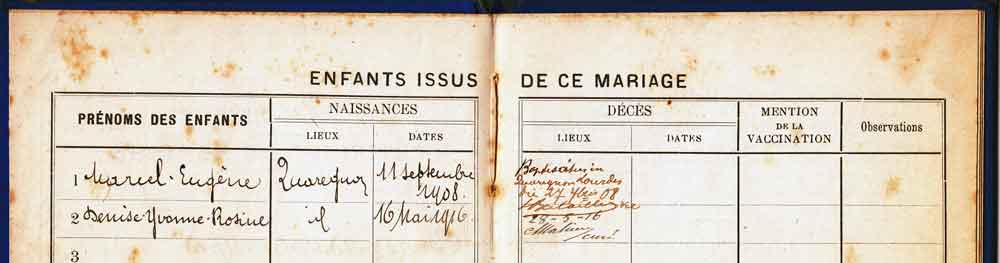 ENFANTS ISSUS DE CE MARIAGE
PRÉNOMS DES ENFANTS
NAISSANCES
LIEUX
DATES
DÉCÈS
LIEUX
DATES
MENTION
DE LA
VACCINATION
Observations
1 Marcel-Eugène
Quaregnon
11 septembre
1908.
Quaregnon Lourdes
die 27 7bris 08
2 Denise-Yvonne-Rosine
id
16 Mai 1916.
28-5-16
curé
3